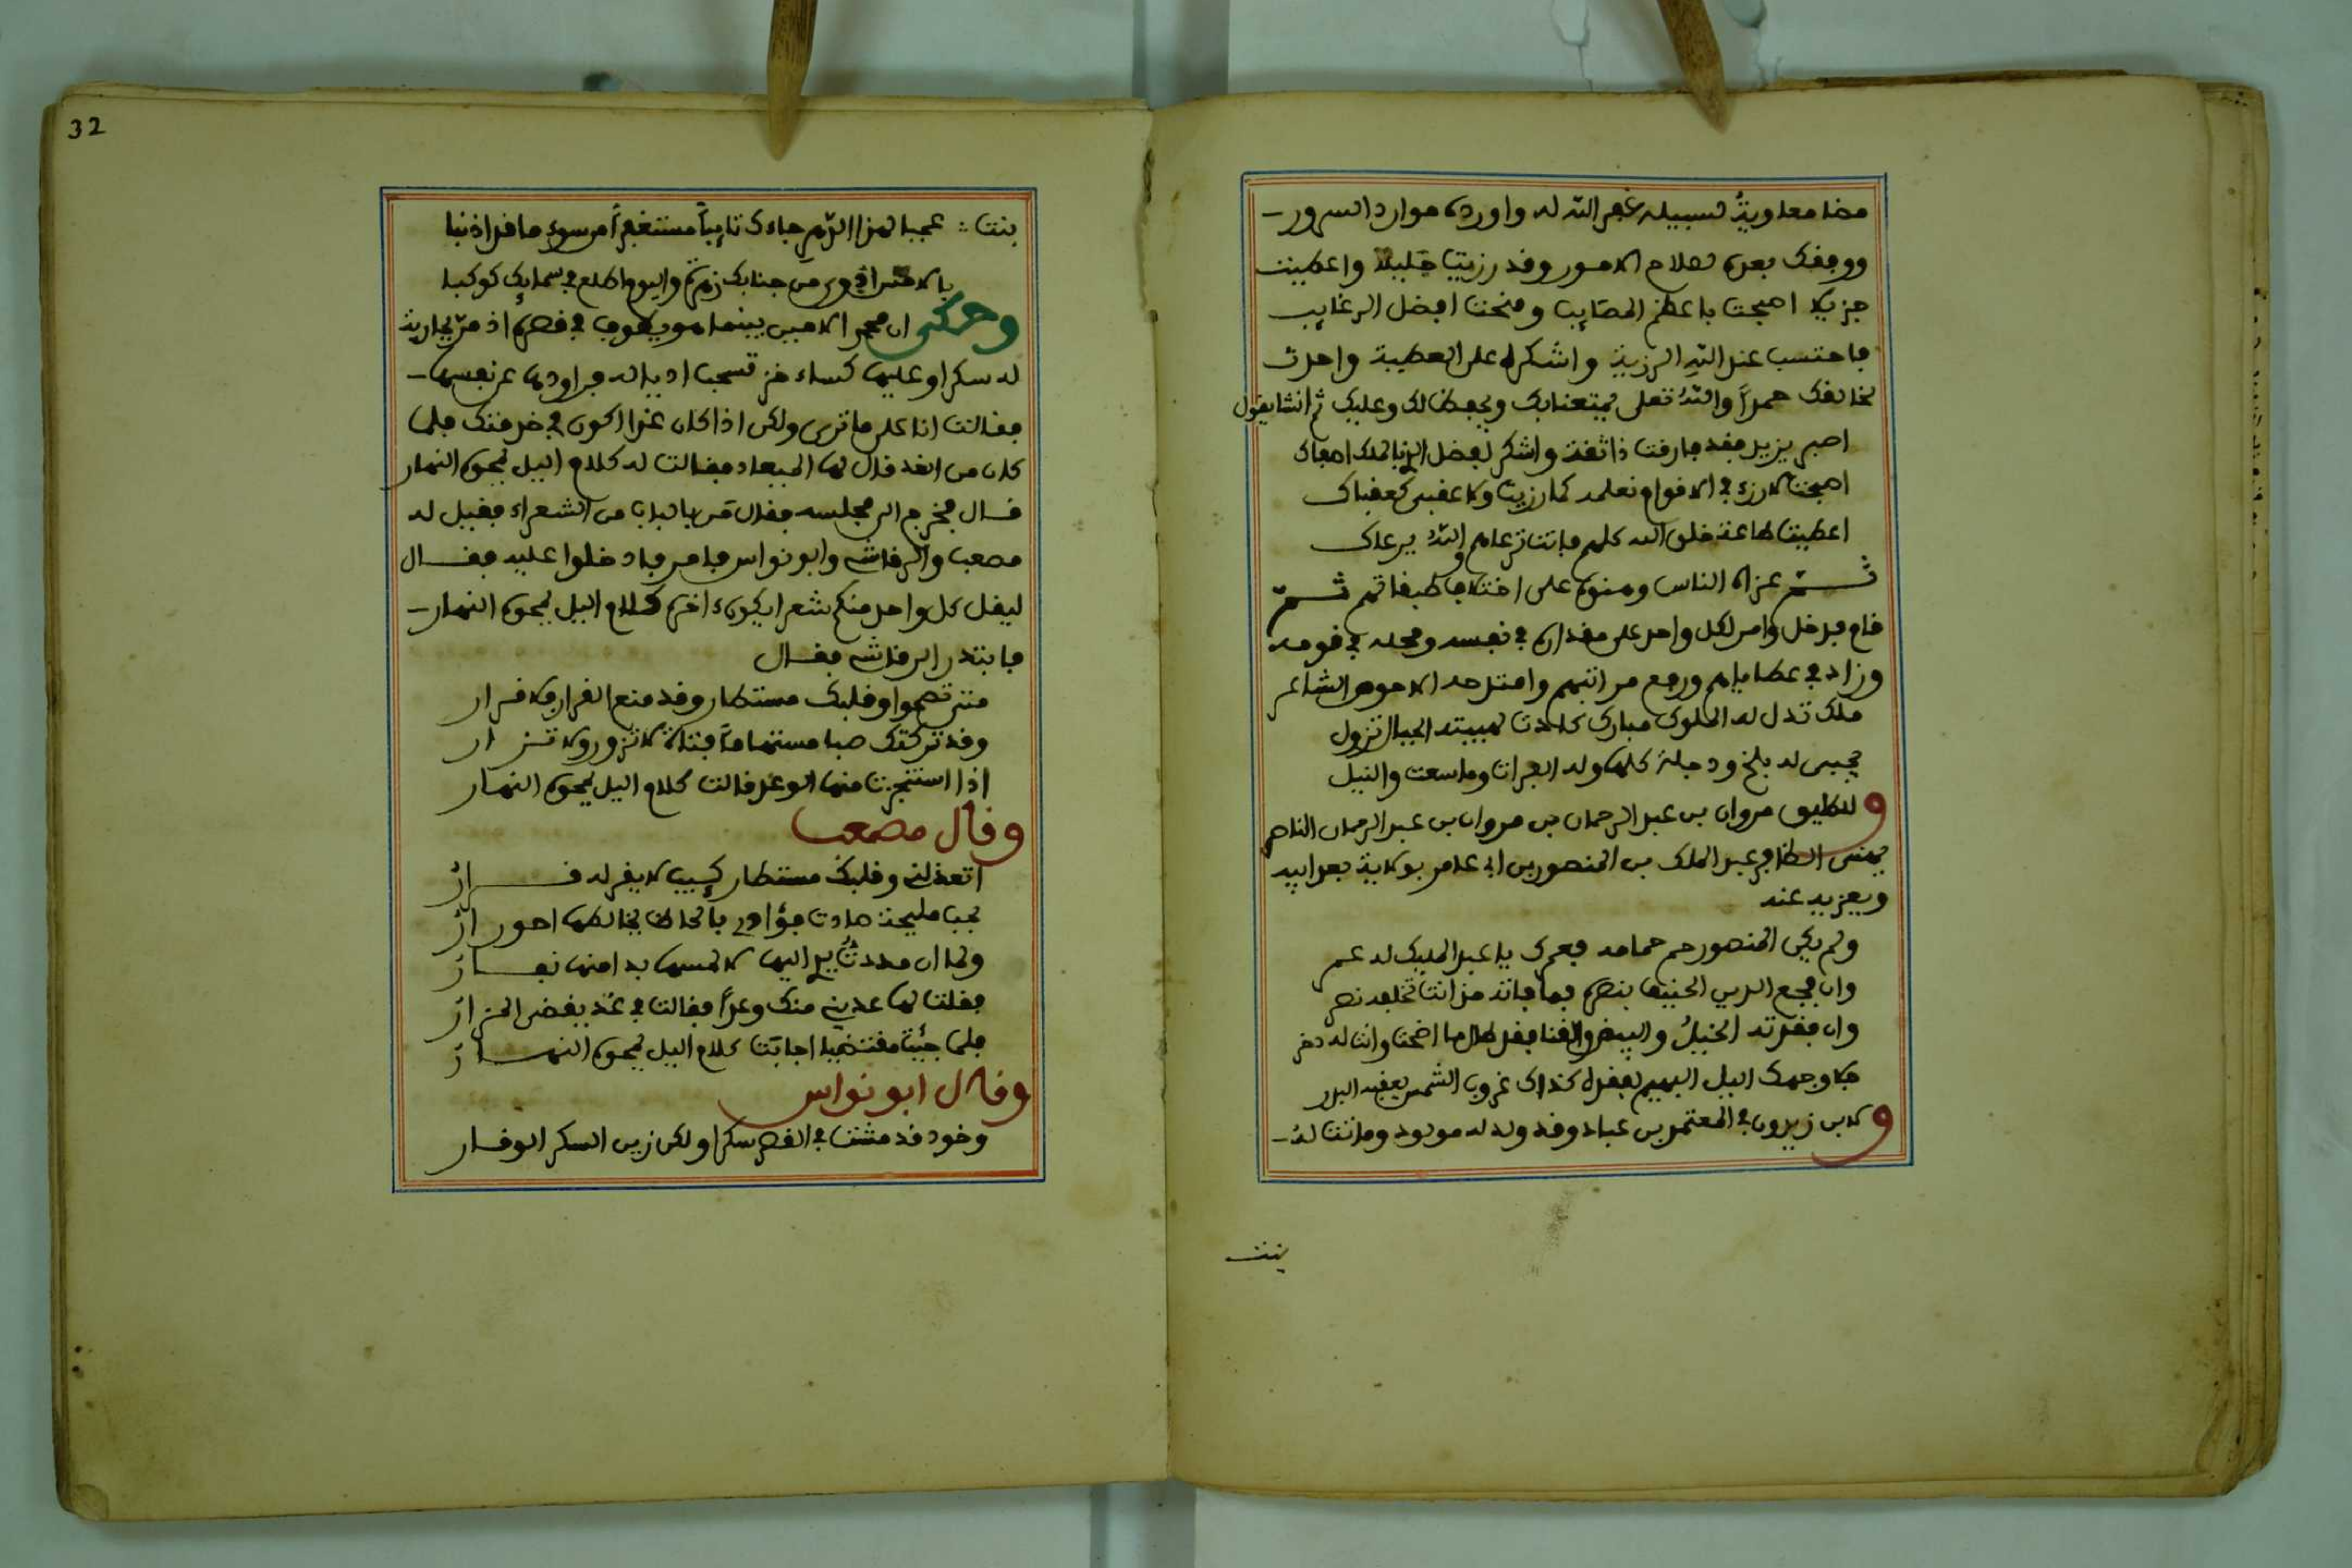 مضا معاوية لسبيله غفر الله له واورده موارد السرور
ووفقك بعده لصلاح الامور وقد رزيت جليلا واعطيت
جزيلا اصبحت باعظم المصايب ومنحت افضل الرغايب
فاحتسب عند الله الرزية واشكره على العطية واحدث
لخالقك حمداً والله تعلى يمتعنا بك ويحفظ لك وعليك ثم انشا يقول
اصبر يزيد فقد فارقت ذا ثقة واشكر لفضل الذي بالملك اصفاك
اصبحت لا رزء في الاقوام نعلمه كما رزيت ولا عقبى كعقباك
اعطيت طاعة خلق الله كلهم فانت ترعاهم والله يرعاك
ثم عزاه الناس وهنوه على اختلاف طبقاتهم ثم
قام فدخل وامر لكل واحد على مقداره في نفسه ومحله في قومه
وزاد في عطاياهم ورفع مراتبهم وامتدحه الاحوص الشاعر
ملك تدل له الملوك مبارك كادت لهيبته الجبال تزول
يجبى له بلخ ودجلة كلها وله الفرات وما سعت والنيل
وللطليق مروان بن عبد الرحمان بن مروان بن عبد الرحمان الناصر
يهنى المظفر عبد الملك بن المنصور بن ابي عامر بولاية بعد ابيه
ويعزيه عنه
ولم يكن المنصور حم حمامه فعمرك يا عبد المليك له عمر
وان فجع الدين الحنيف بنصره فما فاته من انت تخلفه نصر
وان فقدته الخيل والبيض والقنا فقل طال ما اضحت وانت له ذخر
جلا وجهك اليل البهيم بفقده كذاك غروب الشمس يعقبه البدر
ولابن زيدون في المعتمد بن عباد وقد ولد له مولود وماتت له
بنت
32
بنت: عجبا لهذا الدهر جاءك تايباً مستغفراً من سوء ما قد اذنبا
بالامس اذوى من جنابك زهرة واليوم اطلع في سمايك كوكبا
وحكى ان محمد الامين بينما هو يطوف في قصره اذ مر بجارية
له سكرا وعليها كساء خز تسحب اذياله فراودها عن نفسها
فقالت انا على ما ترى ولكن اذا كان غدا اكون في خدمتك فلما
كان من الغد قال لها الميعاد فقالت له كلام اليل يمحوه النهار
قال فخرج الى مجلسه فقال من بالباب من الشعراء فقيل له
مصعب والرقاشي وابو نواس فامر فادخلوا عليه فقال
ليقل كل واحد منكم شعرا يكون اخره كلام اليل يمحوه النهار
فابتدر الرقاشي فقال
متى تصحوا وقلبك مستطار وقد منع القرار فلا قرار
وقد تركتك صبا مستهاماً فتاة لا تزور ولا تزار
اذا استنجزت منها الوعد قالت كلام اليل يمحوه النهار
وقال مصعب
اتعذلني وقلبك مستطار كييب لا يقر له قرار
بحب مليحة صادت فؤادي بالحاظ يخالطها احورار
ولما ان مددت يدي اليها لالمسها بدا منها نفار
فقلت لها عديني منك وعداً فقالت في غد يقضى المزار
فلما جئت مقتضيا اجابت كلام اليل يمحوه النهار
وقال ابو نواس
وخود قد مشت في القصر سكرا ولكن زين السكر الوقار